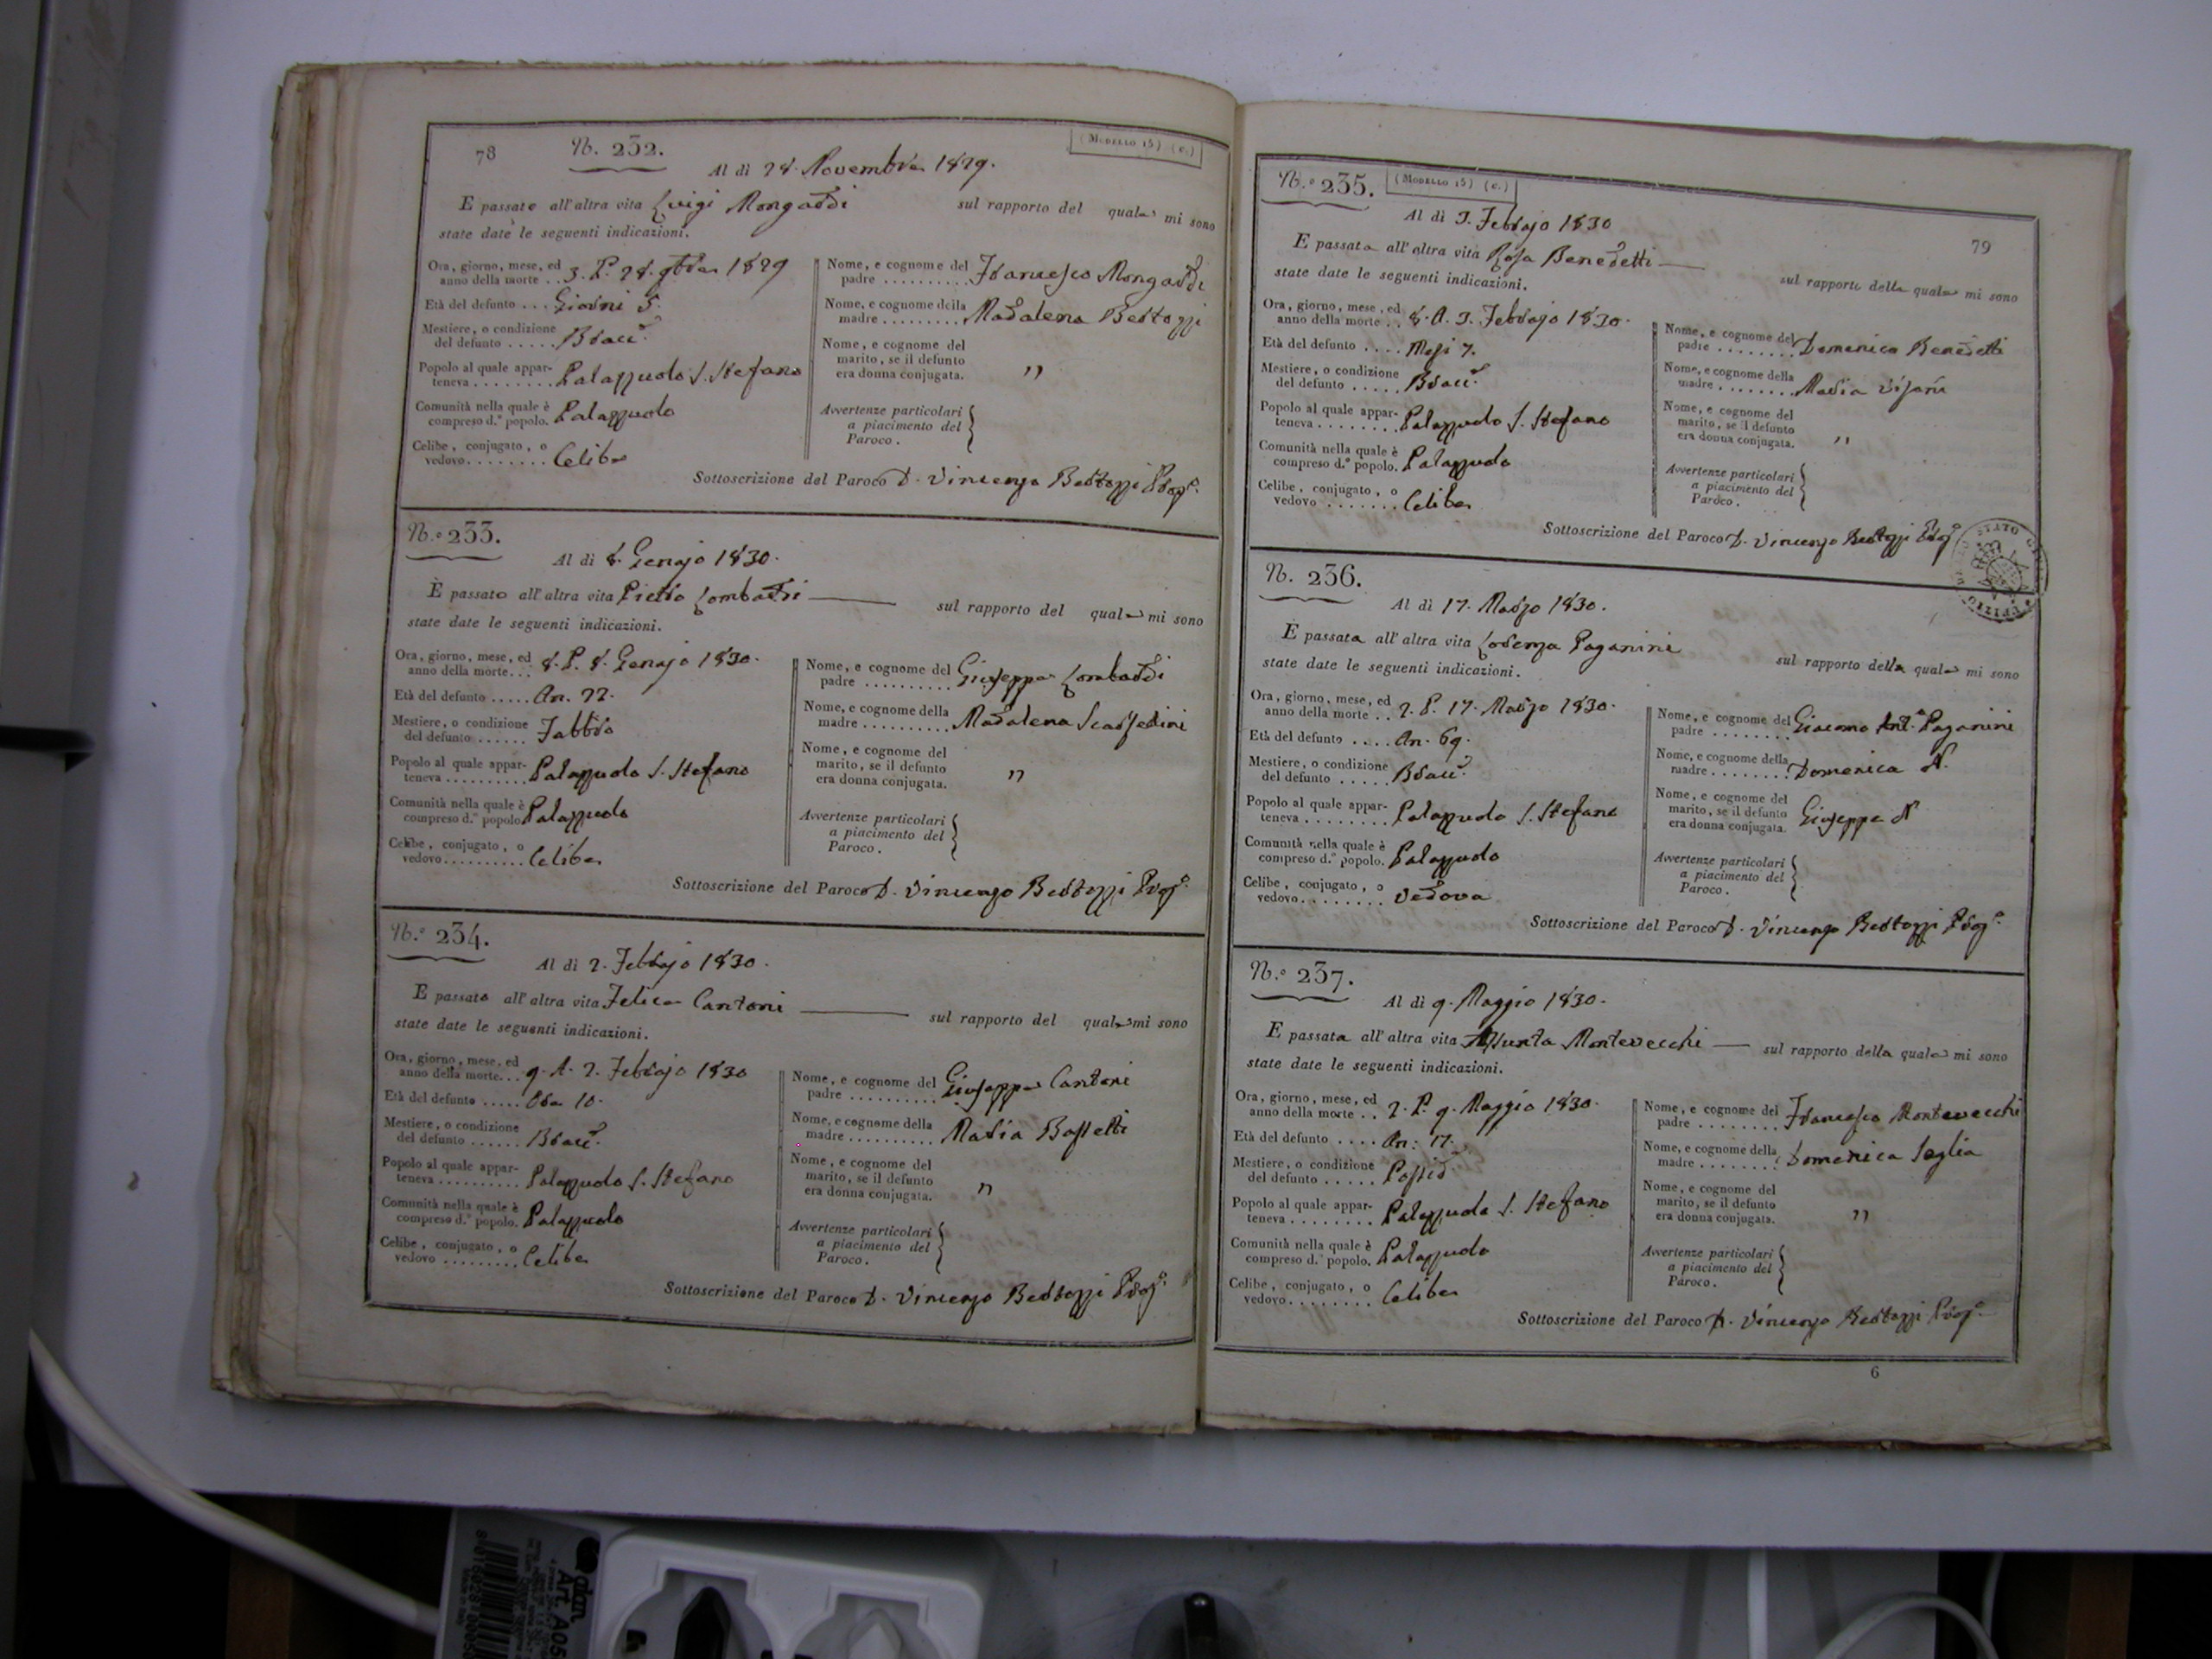 78
N. 232.
(Modello 15) (c.)
Al dì 28. Novembre 1829.
E passato all'altra vita Luigi Mongardi sul rapporto del quale mi sono
state date le seguenti indicazioni.
Ora, giorno, mese, ed
anno della morte .. 3. P. 28. 9bre 1829
Età del defunto ... Giorni 5.
Mestiere, o condizione
del defunto ..... Bracc.e
Popolo al quale appar-
teneva ........ Palazzuolo S. Stefano
Comunità nella quale è
compreso d.° popolo. Palazzuolo
Celibe, conjugato, o
vedovo........ Celibe
Nome, e cognome del
padre .......... Francesco Mongardi
Nome, e cognome della
madre ......... Madalena Bertozzi
Nome, e cognome del
marito, se il defunto
era donna conjugata. "
Avvertenze particolari
a piacimento del
Paroco.
Sottoscrizione del Paroco D. Vincenzo Bertozzi Prop.°
N.° 233.
Al dì 8. Genajo 1830.
È passato all'altra vita Pietro Lombardi sul rapporto del quale mi sono
state date le seguenti indicazioni.
Ora, giorno, mese, ed
anno della morte... 8. P. 8. Genajo 1830.
Età del defunto ..... An. 22.
Mestiere, o condizione
del defunto ...... Fabbro
Popolo al quale appar-
teneva .......... Palazzuolo S. Stefano
Comunità nella quale è
compreso d.° popolo Palazzuolo
Celibe, conjugato, o
vedovo.......... Celibe
Nome, e cognome del
padre .......... Giuseppe Lombardi
Nome, e cognome della
madre .......... Madalena Scarsedini
Nome, e cognome del
marito, se il defunto
era donna conjugata. "
Avvertenze particolari
a piacimento del
Paroco.
Sottoscrizione del Paroco D. Vincenzo Bertozzi Prop.°
N.° 234.
Al dì 2. Febrajo 1830.
E passato all'altra vita Felice Cantoni sul rapporto del quale mi sono
state date le seguenti indicazioni.
Ora, giorno, mese, ed
anno della morte... 9. A. 2. Febrajo 1830
Età del defunto ..... Ore 10.
Mestiere, o condizione
del defunto ...... Bracc.e
Popolo al quale appar-
teneva .......... Palazzuolo S. Stefano
Comunità nella quale è
compreso d.° popolo. Palazzuolo
Celibe, conjugato, o
vedovo ......... Celibe
Nome, e cognome del
padre .......... Giuseppe Cantoni
Nome, e cognome della
madre .......... Maria
Nome, e cognome del
marito, se il defunto
era donna conjugata. "
Avvertenze particolari
a piacimento del
Paroco.
Sottoscrizione del Paroco D. Vincenzo Bertozzi Prop.°
N.° 235.
(Modello 15) (c.)
79
Al dì 3. Febrajo 1830
E passata all'altra vita Rosa Benedetti sul rapporto della quale mi sono
state date le seguenti indicazioni.
Ora, giorno, mese, ed
anno della morte .. 8. A. 3. Febrajo 1830.
Età del defunto .... Mesi 7.
Mestiere, o condizione
del defunto ..... Bracc.e
Popolo al quale appar-
teneva ........ Palazzuolo S. Stefano
Comunità nella quale è
compreso d.° popolo. Palazzuolo
Celibe, conjugato, o
vedovo ....... Celibe
Nome, e cognome del
padre ........ Domenico Benedetti
Nome, e cognome della
madre ....... Maria Visani
Nome, e cognome del
marito, se il defunto
era donna conjugata. "
Avvertenze particolari
a piacimento del
Paroco.
Sottoscrizione del Paroco D. Vincenzo Bertozzi Prop.°
N. 236.
Al dì 17. Marzo 1830.
E passata all'altra vita Lorenza Paganini sul rapporto della quale mi sono
state date le seguenti indicazioni.
Ora, giorno, mese, ed
anno della morte .. 2. P. 17. Marzo 1830.
Età del defunto .... An. 69.
Mestiere, o condizione
del defunto ..... Bracc.e
Popolo al quale appar-
teneva ........ Palazzuolo S. Stefano
Comunità nella quale è
compreso d.° popolo. Palazzuolo
Celibe, conjugato, o
vedovo........ Vedova
Nome, e cognome del
padre ........ Giacomo Ant.° Paganini
Nome, e cognome della
madre ........ Domenica N.
Nome, e cognome del
marito, se il defunto
era donna conjugata. Giuseppe N
Avvertenze particolari
a piacimento del
Paroco.
Sottoscrizione del Paroco D. Vincenzo Bertozzi Prop.°
N.° 237.
Al dì 9. Maggio 1830.
E passata all'altra vita Assunta Montevecchi sul rapporto della quale mi sono
state date le seguenti indicazioni.
Ora, giorno, mese, ed
anno della morte .. 2. P. 9. Maggio 1830.
Età del defunto .... An: 17.
Mestiere, o condizione
del defunto ..... Possid.e
Popolo al quale appar-
teneva ........ Palazzuolo S. Stefano
Comunità nella quale è
compreso d.° popolo. Palazzuolo
Celibe, conjugato, o
vedovo ........ Celibe
Nome, e cognome del
padre ........ Francesco Montevecchi
Nome, e cognome della
madre ........ Domenica Soglia
Nome, e cognome del
marito, se il defunto
era donna conjugata. "
Avvertenze particolari
a piacimento del
Paroco.
Sottoscrizione del Paroco D. Vincenzo Bertozzi Prop.°
6
Art. A05